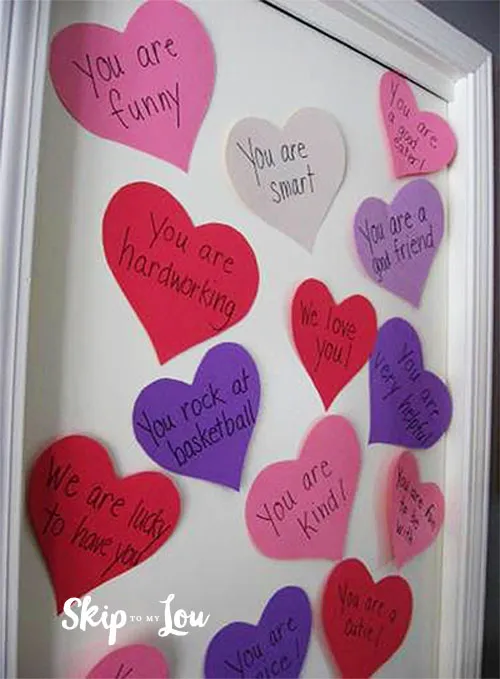 You are
funny
You are
smart
You are
a good
eater!
You are
hardworking
You are a
good friend
We love
you!
You are
very helpful
You rock at
basketball
We are lucky
to have you
You are
kind!
You are fun
to be
with
You are a
cutie!
You are
nice!
SKIP TO MY LOU